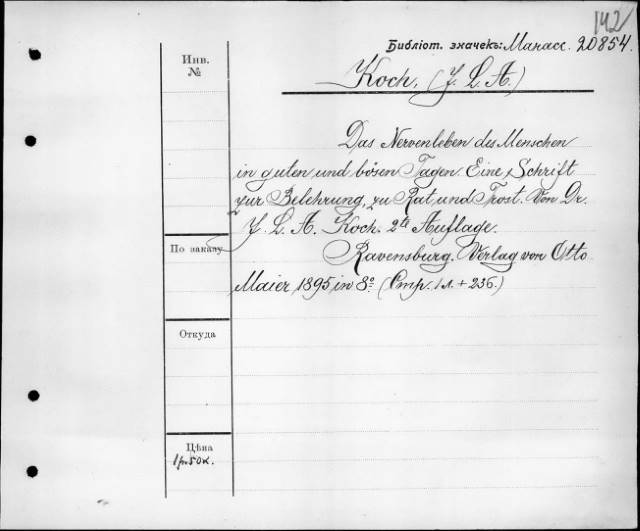 142
Библіот. значекъ: Манасс. 20854.
Инв.
№
Koch, (J. L. A.)
Das Nervenleben des Menschen
in guten und bösen Tagen. Eine Schrift
zur Belehrung, zu Rat und Trost. Von Dr.
J. L. A. Koch. 2te Auflage.
По заказу
Ravensburg. Verlag von Otto
Maier, 1895, in 8º. (Стр. 1 л. + 236.)
Откуда
Цѣна
1 р. 50 к.